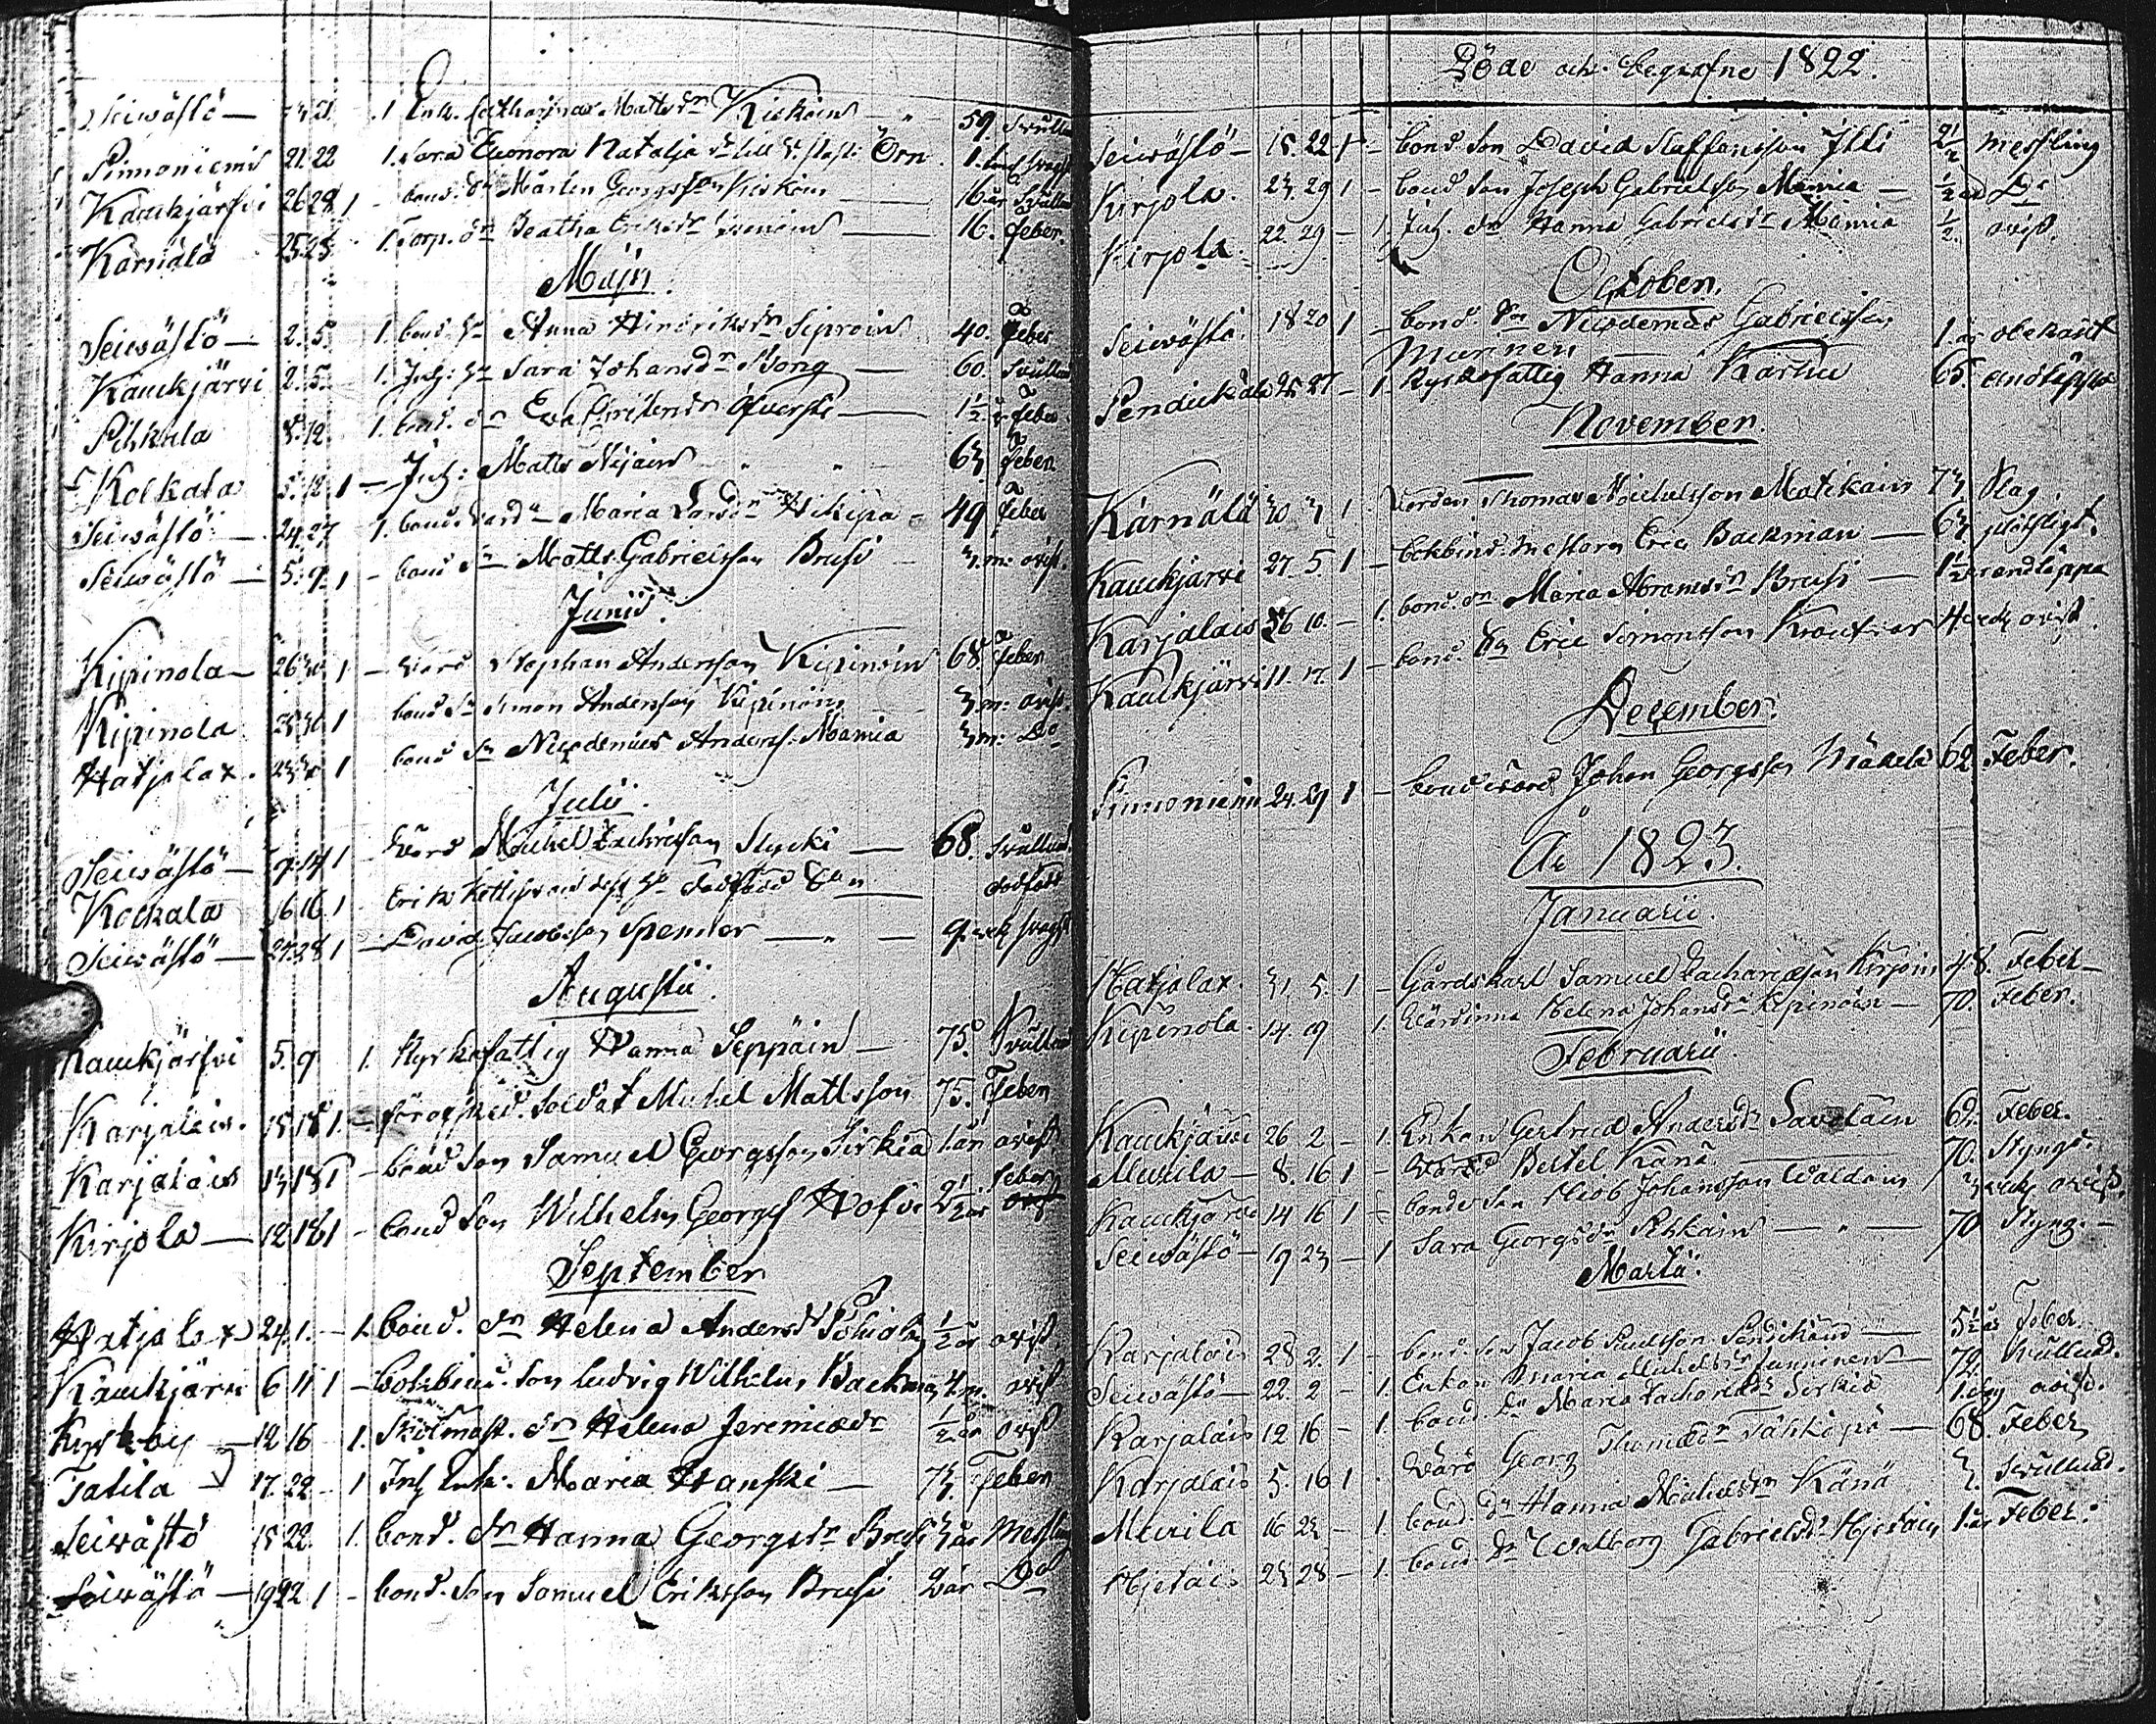 Seiwästö 1 Enk. Catharina Mattsdr Kiskoin 59 Svulln
Pinnoniemi 21 22 1. Sara Eleonora Natalja Örn 1.
Kaukjärfvi 26 28 1 - bond. Sn Mårten Georgsson Kiskoin 16 år Svulln
Karnälä 25 25 1. Torp. dr Beatha 16. feber.
Majn.
Seiwästö 2. 5. 1. bond. Anna Hindriksdr Siproin 40. feber
Kaukjärvi 2. 5. 1. Inh: Sara Johansdr Bong 60. Svulln
Pihkala 8. 12. 1. bond. dr Ewa 1½ år feber
Kolkala 5. 12 1 - Inh: Matts Nyjäin 63 feber
Seiwästö 24. 27 1. bond. Maria Larsdr Hikipä 49 feber
Seiwästö 5. 9. 1 - bond Sn Matts Gabrielsson Brusi 3. m: ovist.
Junii.
Kipinola 26 30 1 - Värd Stephan Andersson Kipinoin 68 feber
Kipinola 30 1 bond Sn Simon Andersson Kipinoin 3 m: ovist.
Hatjalax. 1 bond Sn Nicodemus Anders: Mamia 3 m: Do
Julii.
Seiwästö 9. 14 1 Värd Michel Zachrisson Stycki 68. Svulln
Kockala 16 16. 1 Erik dödfödd Son dödfödd
Seiwästö 27. 28 1 - David Jacobsson Spenler 9. wek
Augustii.
Kaukjärfvi 5. 9 1. Kyrkofattig Hanna Seppäin 75. Svulln
Karjalais. 15 18 1. - Soldat Michel Mattsson 75. Feber
Karjalais 13 18 1 - bond Son Samuel Georgsson Sirkiä 1. år ovist
Kirjola 12 18 1 - bond Son Wilhelm Georgs Hofvi 2½ år feber
September
Hatjalax 24. 1. - 1. bond. dr Helena Andersdr Pohjola ½ år ovist.
Kaukjärvi 6 11 1 - bokbind. Son Ludvig Wilhelm Backman 4 m. ovist
Kyrkoby 12 16 1. Skolmäst. dr Helena Jeremiædr ½ år ovist
Tatila 17. 22 - 1 Inh Enk: Maria Hanski 73. Feber
Seiwästö 15 22. 1. bond. dr Hanna Georgsdr Brusi 3 år Messling
Seiwästö 19 22. 1 - bond. Son Samuel Eriksson Brusi 2 år Do
Döde och begrafne 1822.
Seiwästö 15. 22 1 - bond Son David Staffansson Illi 2½ Messling
Kirjola. 23. 29 1 - bond Son Joseph Gabrielsson Mamia ½ år Do
Kirjola. 22. 29 - 1. Inh. dr Hanna Gabrielsdr Mamia ½. ovist.
October.
Seiwästö. 18 20 1 - bond. Son Nicodemus Gabrielsson 1 år obekant
Murinen
Pendickälä 25 27 - 1. Kyrkofattig Hanna Karhu 65. andtäppa
November.
Kärnälä 30 3 1. Värden Thomas Michelsson Matikain 73 Slag.
Kaukjarvi 27. 5. 1 - bokbind. mästarn Eric Backman 63 plötsligt.
Karjalais 26 10. - 1. bond. dr Maria Abramsdr Brusi 1½ år andtäppa
Kaukjärvi 11. 17. 1 - bond. Sn Eric Simonsson 4 wek ovist.
December.
Pinnoniemi 24. 29 1 - bond värd Johan Georgsson Mäkelä 62 Feber.
År 1823.
Januarii.
Hatjalax. 31. 5. 1 - Gårdskarl Samuel Zachariæson Kirjoin 48. Feber
Kipinola. 14. 19 1. Värdinna Helena Johansdr Kipinoin 70. Feber.
Februarii.
Kaukjärvi 26 2 - 1. Enkan Gertrud Andersdr Savolain 62. Feber.
Murila 8. 16 1 - Värd Bertel Känä 70. Styng.
Kaukjärvi 14 16 1 - bonde Son Hiob Johansson Waldoin 3 wek ovist.
Seiwästö 19 23 - 1 Sara Georgsdr Pihkain 70 Styng.
Martii.
Karjalais 28 2. 1 - bond Son Jacob Paulsson Pendikäin 5½ år Feber
Seiwästö 22. 2 - 1. Enkan Maria Michelsdr Junninen 72. Svullnad.
Karjalais 12 16 - 1. bond. Dr Maria Zachariædr Sirkiä 1. dag ovist.
Karjalais 5. 16 1 Värd Georg Thomæ 68. Feber
Murila 16 23 - 1. bond. Dr Hanna Michelsdr Känä 3. Svullnad.
Hjetais 23 28 - 1. bond. Dr Walborg Gabrielsdr Hjetain 1 år Feber.